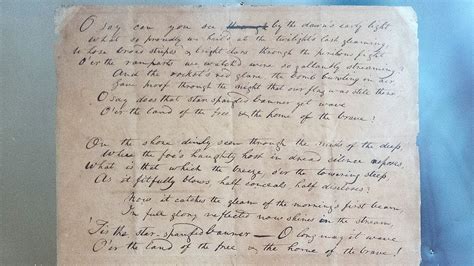 O say can you see through by the dawn's early light
What so proudly we hail'd at the twilight's last gleaming,
Whose broad stripes & bright stars through the perilous fight
O'er the ramparts we watch'd were so gallantly streaming?
And the rocket's red glare, the bomb bursting in air,
Gave proof through the night that our flag was still there
O say does that star-spangled banner yet wave
O'er the land of the free & the home of the brave?
On the shore dimly seen through the mists of the deep,
Where the foe's haughty host in dread silence reposes,
What is that which the breeze, o'er the towering steep,
As it fitfully blows, half conceals, half discloses?
Now it catches the gleam of the morning's first beam,
In full glory reflected now shines in the stream,
'Tis the star-spangled banner — O long may it wave
O'er the land of the free & the home of the brave!